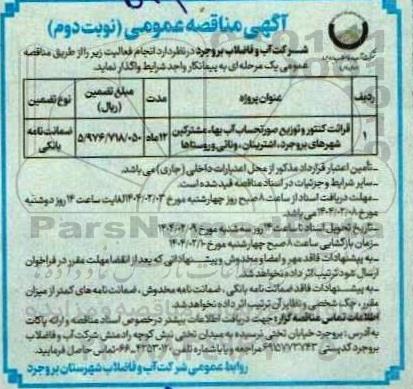 آگهی مناقصه عمومی (نوبت دوم)
شرکت آب و فاضلاب بروجرد در نظر دارد انجام فعالیت زیر را از طریق مناقصه
عمومی یک مرحله ای به پیمانکار واجد شرایط واگذار نماید.
ردیف
عنوان پروژه
مدت
مبلغ تضمین (ریال)
نوع تضمین
۱
قرائت کنتور و توزیع صورتحساب آب بهاء مشترکین
شهرهای بروجرد، اشترینان، ونائی وروستاها
۱۲ماه
۵/۹۷۶/۷۱۸/۰۵۰
ضمانت نامه بانکی
ـ تأمین اعتبار قرارداد مذکور از محل اعتبارات داخلی (جاری) می باشد.
ـ سایر شرایط و جزئیات در اسناد مناقصه قید شده است.
ـ مهلت دریافت اسناد از ساعت ۸ صبح روز چهارشنبه مورخ ۱۴۰۴/۰۲/۰۳ لغایت ساعت ۱۴ روز دوشنبه
مورخ ۱۴۰۴/۰۲/۰۸ می باشد.
ـ تاریخ تحویل اسناد تا ساعت ۱۴ روز سه شنبه مورخ ۱۴۰۴/۰۲/۰۹
ـ زمان بازگشایی ساعت ۸ صبح چهارشنبه مورخ ۱۴۰۴/۰۲/۱۰
ـ به پیشنهادات فاقد مهر و امضا و مخدوش و پیشنهاداتی که بعد از انقضا مهلت مقرر در فراخوان
ارسال شود ترتیب اثر داده نخواهد شد.
ـ به پیشنهادات فاقد ضمانت نامه بانکی، ضمانت نامه مخدوش، ضمانت نامه های کمتر از میزان
مقرر، چک شخصی و نظایر آن ترتیب اثر داده نخواهد شد.
اطلاعات تماس مناقصه گزار: جهت دریافت اطلاعات بیشتر درخصوص اسناد مناقصه و ارائه پاکات
به آدرس: بروجرد خیابان تختی نرسیده به میدان تختی نبش کوچه رادمنش شرکت آب و فاضلاب
بروجرد کدپستی ۶۹۱۵۷۷۳۷۴۳ مراجعه و یا با شماره تلفن ۴۲۵۳۰۱۲۰-۰۶۶ تماس حاصل فرمایید.
روابط عمومی شرکت آب و فاضلاب شهرستان بروجرد